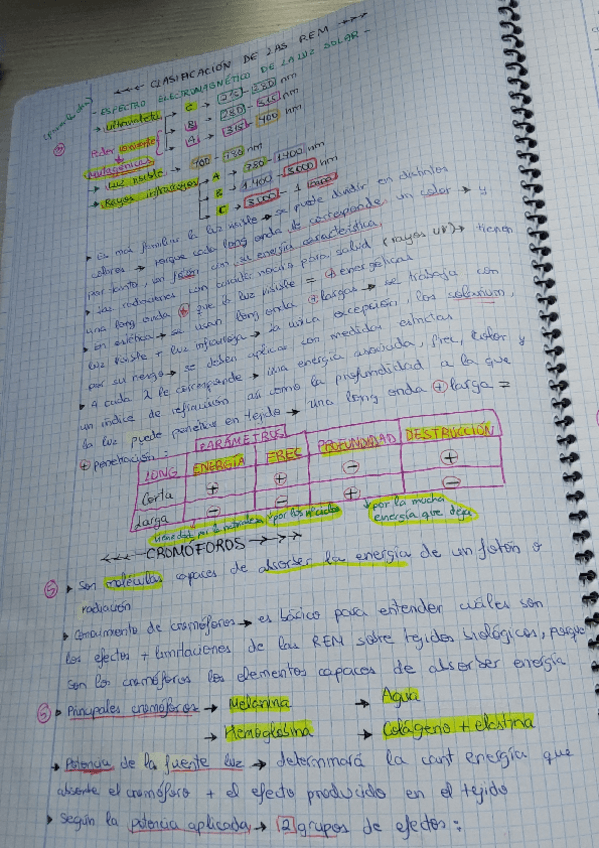 ←←← CLASIFICACIÓN DE LAS REM →→→
- ESPECTRO ELECTROMAGNÉTICO DE LA LUZ SOLAR -
→ Ultravioleta → C → 215 - 280 nm
Poder ionizante → B → 280 - 315 nm
mutagénicas → A → 315 - 400 nm
→ Luz visible → 400 - 780 nm
→ Rayos infrarrojos → A → 780 - 1400 nm
→ B → 1400 - 3000 nm
→ C → 3000 - 1
▸ Es más familiar la luz visible → se puede dividir en distintos
colores → porque cada long onda le corresponde un color → y
por tanto, un fotón con su energía característica
▸ Las radiaciones con carácter nocivo para salud (rayos UV) → tienen
una long onda que la luz visible = ⊕ energéticas
▸ En estética → se usan long onda ⊕ largas → se trabaja con
luz visible + luz infrarroja → la única excepción, los solarium,
por su riesgo → se deben aplicar con medidas estrictas
▸ A cada λ le corresponde → una energía asociada, frec, color y
un índice de refracción así como la profundidad a la que
la luz puede penetrar en tejido → una long onda ⊕ larga =
⊕ penetración:
PARÁMETROS
LONG ENERGÍA FREC PROFUNDIDAD DESTRUCCIÓN
Corta + + - +
Larga - - + -
por los
por la mucha
energía que deja
←←← CROMÓFOROS →→→
▸ Son moléculas capaces de absorber la energía de un fotón o
radiación
▸ Conocimiento de cromóforos → es básico para entender cuáles son
los efectos + limitaciones de las REM sobre tejidos biológicos, porque
son los cromóforos los elementos capaces de absorber energía
▸ Principales cromóforos → Melanina → Agua
→ Hemoglobina → Colágeno + elastina
▸ Potencia de la fuente luz → determinará la cant energía que
absorbe el cromóforo + el efecto producido en el tejido
▸ Según la potencia aplicada → 2 grupos de efectos: